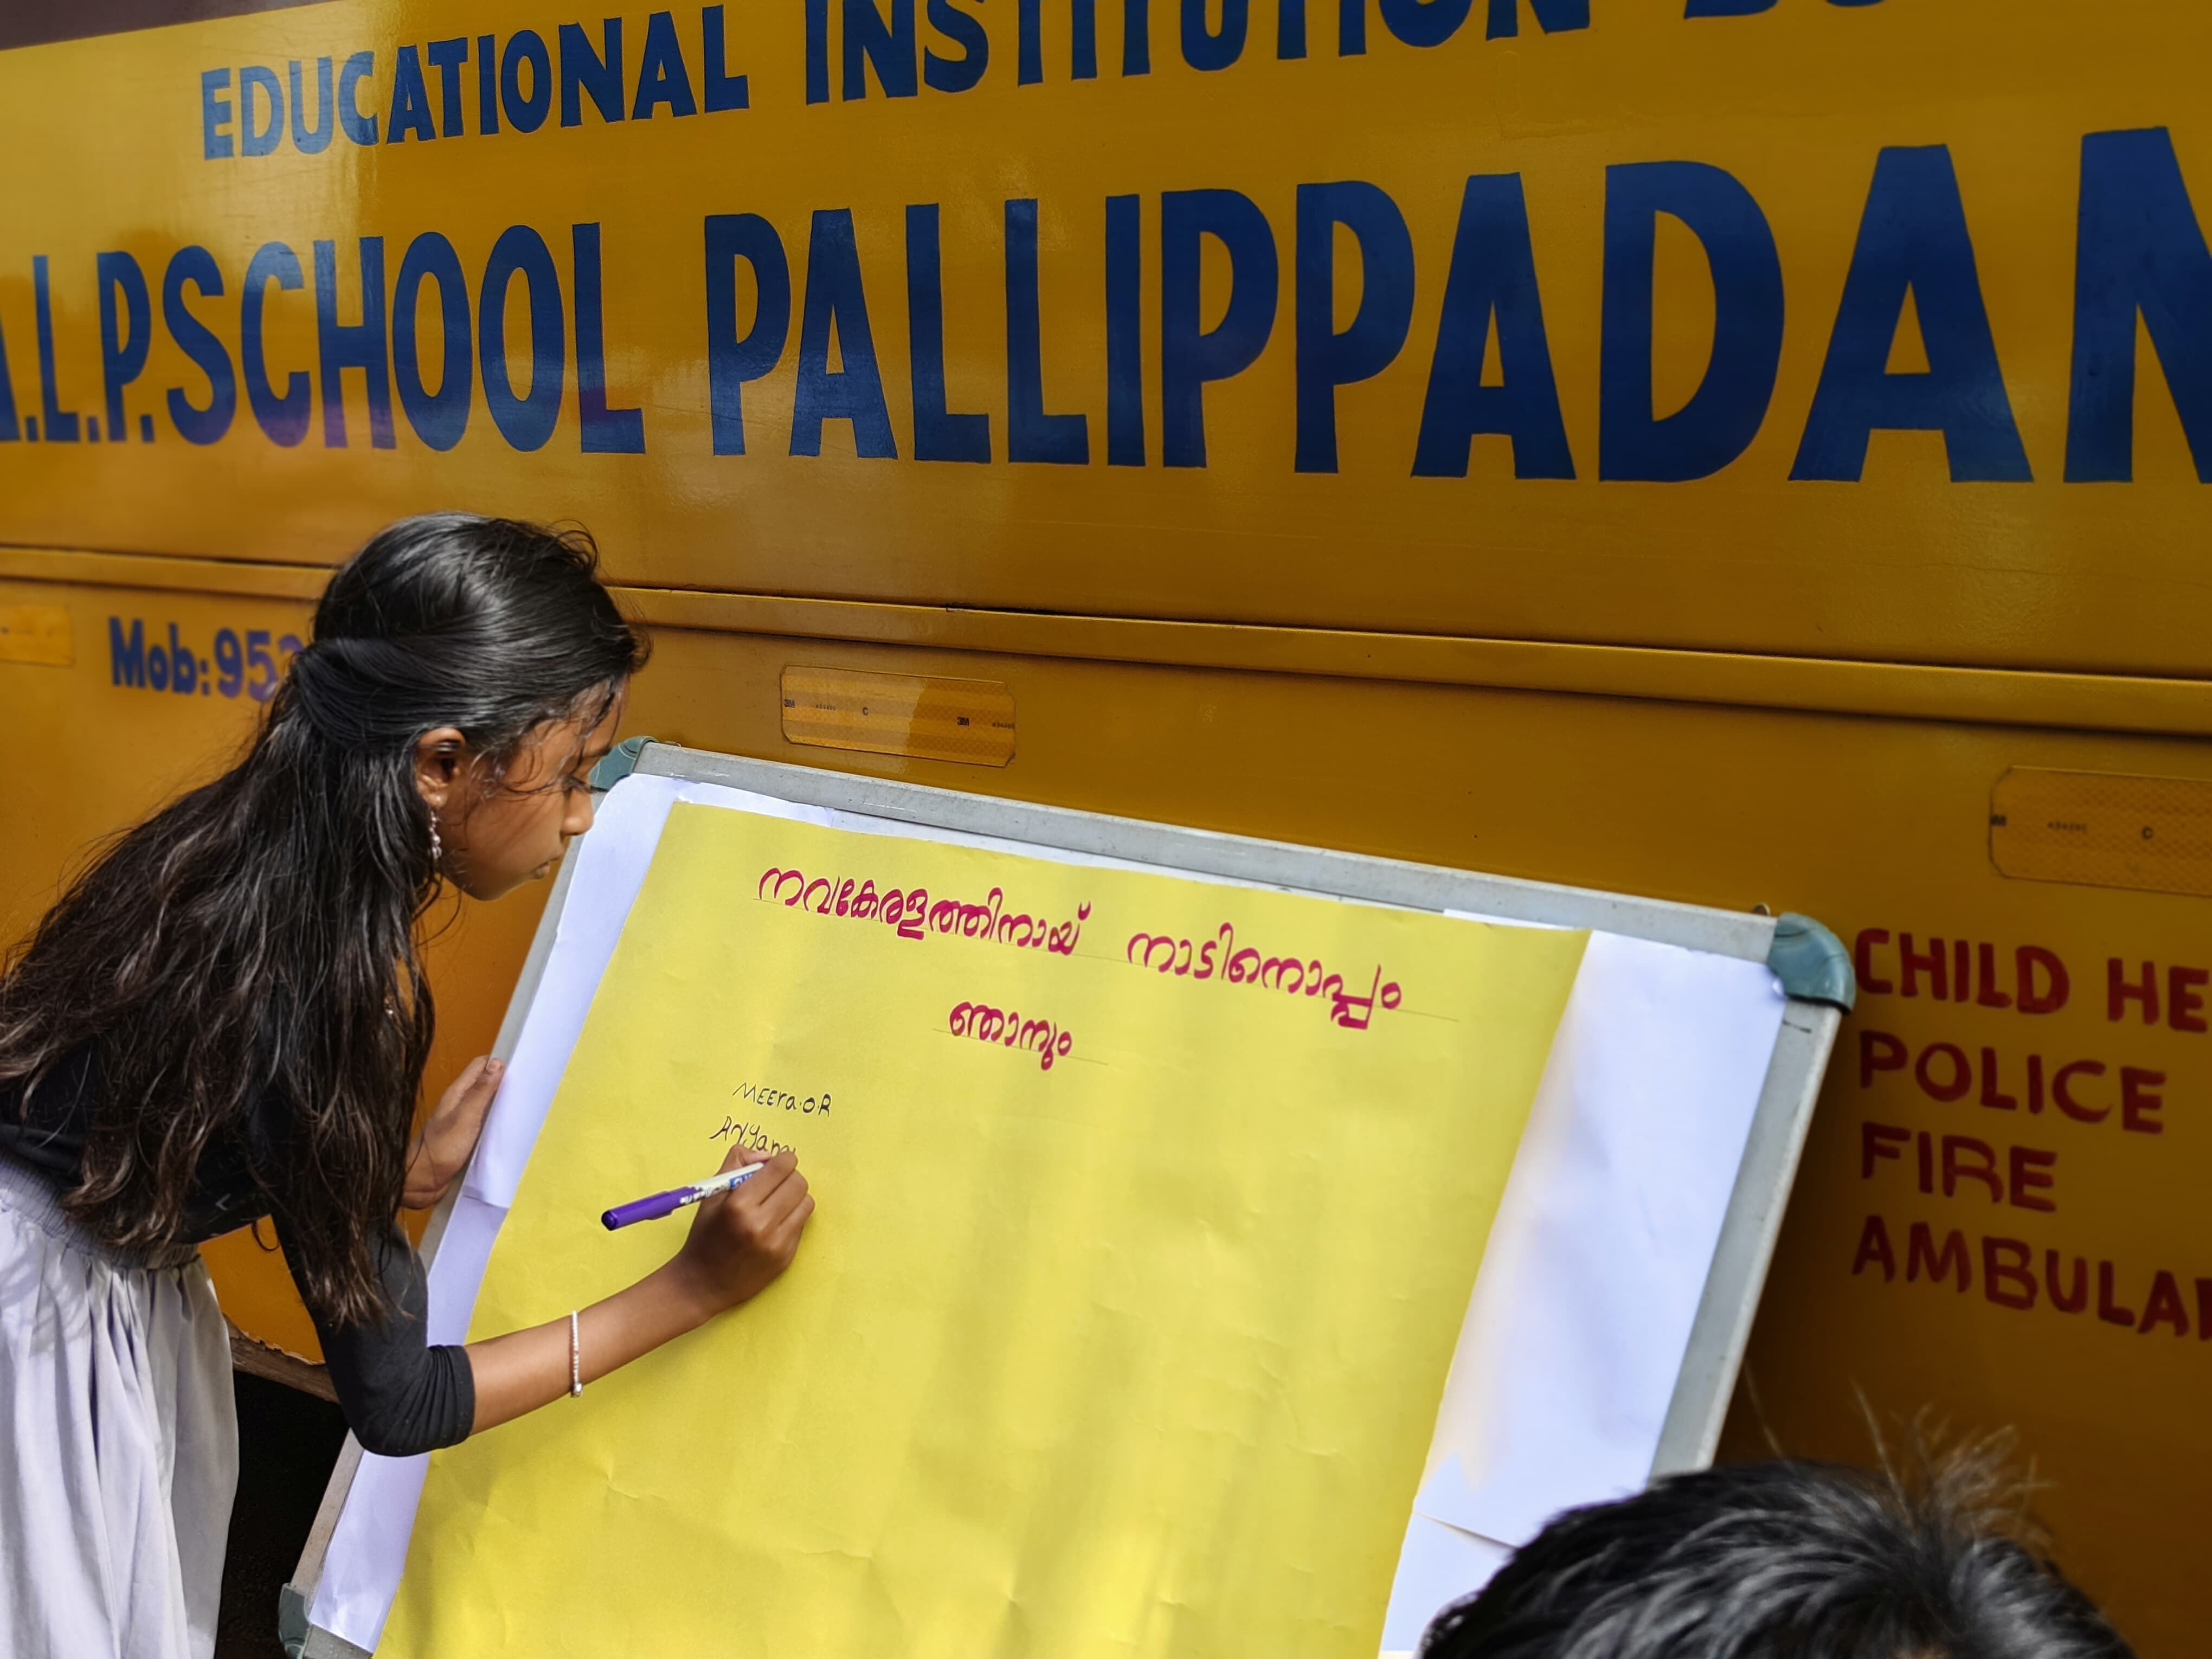 EDUCATIONAL INSTITUTION
A.L.P.SCHOOL PALLIPPADAM
Mob:95
3M C 3M
C
നവകേരളത്തിനായ് നാടിനൊപ്പം
ഞാനും
MEEra.O.R
CHILD HE
POLICE
FIRE
AMBULA